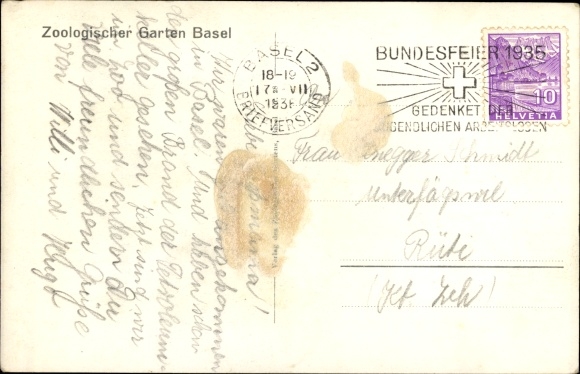 Zoologischer Garten Basel
BASEL 2
18-19
17 VII
1935
BRIEFVERSAND
BUNDESFEIER 1935
GEDENKET DER
JUGENDLICHEN ARBEITSLOSEN
10
HELVETIA
Liebe Mamma!
Wir waren angekommen
in Basel. Und haben schon
den großen Brand der Petroleum-
keller gesehen. Jetzt sind wir
im Zoo und senden Dir
viele freundlichen Grüße
von Willi und
Frau Schmidt
Unterfägswil
Rüti
(Kt. Zch)